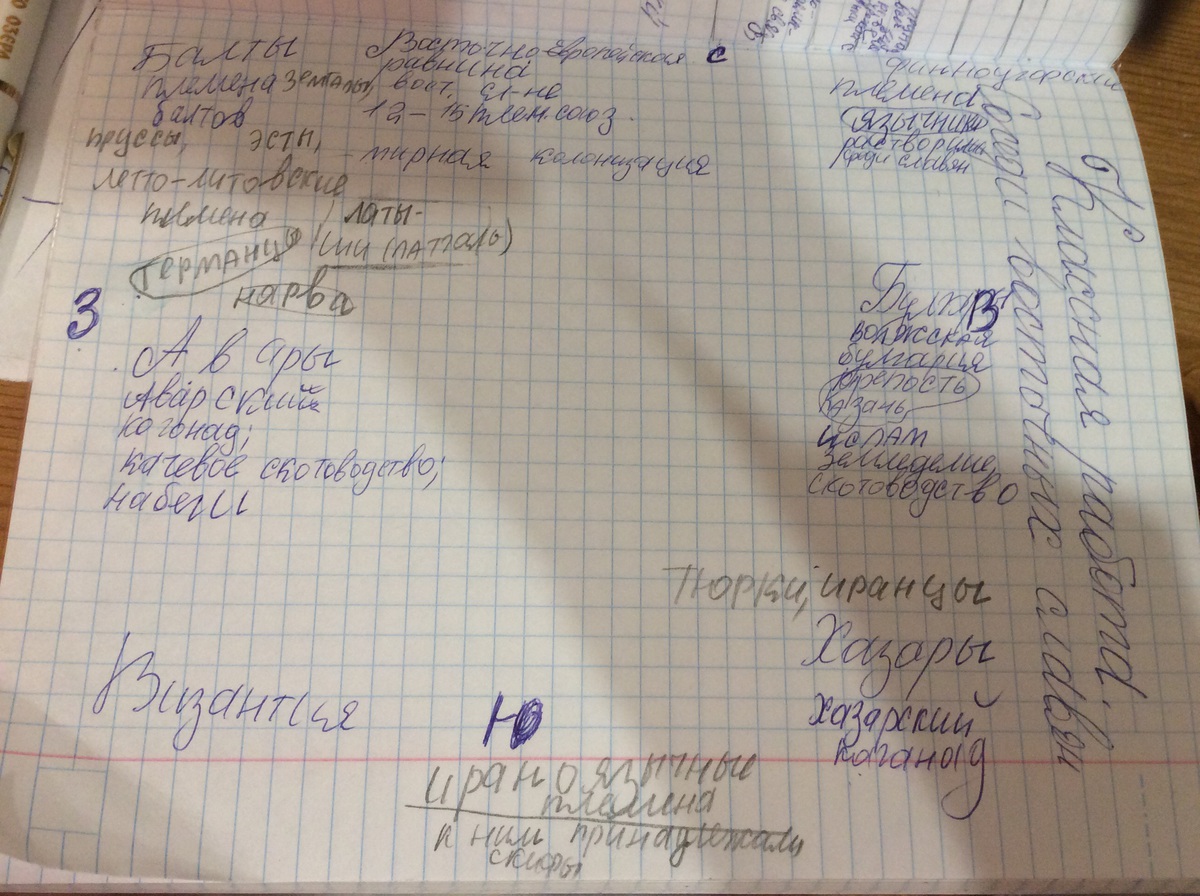 Классная работа.
Соседи восточных славян
Балты
племена земгалы,
балтов
пруссы, эсты,
летто-литовские
племена
латы-
ши (латгалы)
германцы
нарва
Восточно-европейская
равнина
вост. сл-не
12-15 плем. союз.
- мирная колонизация
С
финноугорский
племена
язычники
растворились
среди славян
З
Авары
Аварский
когонад;
качевое скотоводство;
набеги
В
Булгары
волжская
булгария
крепость
казань
ислам
земледелие,
скотоводство
тюрки, иранцы
Хазары
хазарский
каганад
Византия
Ю
ираноязычные
племена
к ним принадлежали
скифы